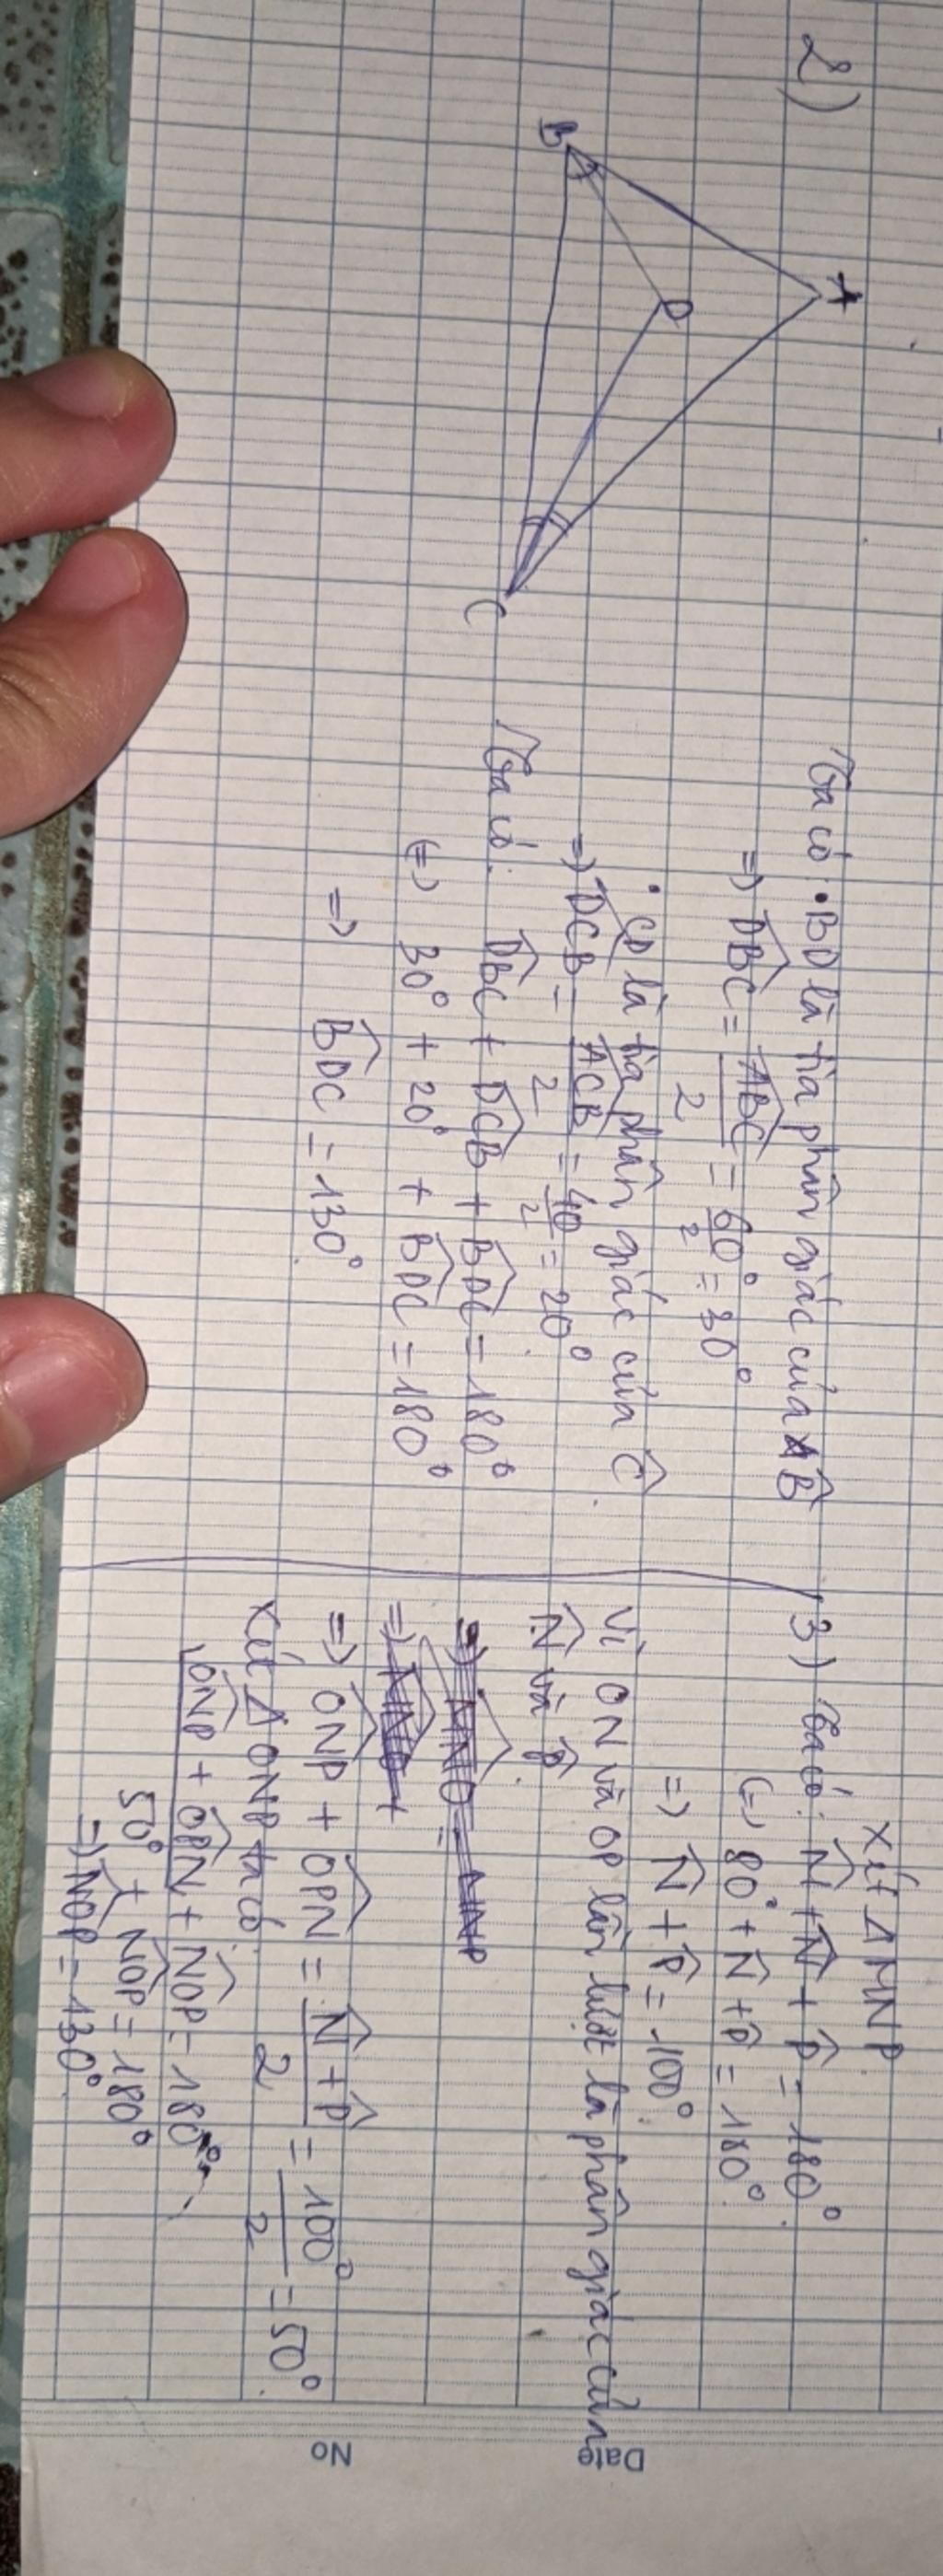 2)
A
B
D
C
Ta có: • BD là tia phân giác của B̂
=> D̂BC = ÂBC / 2 = 60° / 2 = 30°
• CD là tia phân giác của Ĉ.
=> D̂CB = ÂCB / 2 = 40 / 2 = 20°.
Ta có: D̂BC + D̂CB + B̂DC = 180°
(=) 30° + 20° + B̂DC = 180°
=> B̂DC = 130°.
Xét Δ MNP
3) Ta có: M̂ + N̂ + P̂ = 180°.
(=) 80° + N̂ + P̂ = 180°.
=> N̂ + P̂ = 100°.
Vì ON và OP lần lượt là phân giác của
N̂ và P̂.
=> ÔNP + ÔPN = N̂ + P̂ / 2 = 100° / 2 = 50°.
Xét Δ ONP ta có:
ÔNP + ÔPN + N̂OP = 180°
50° + N̂OP = 180°
=> N̂OP = 130°.
Date
No